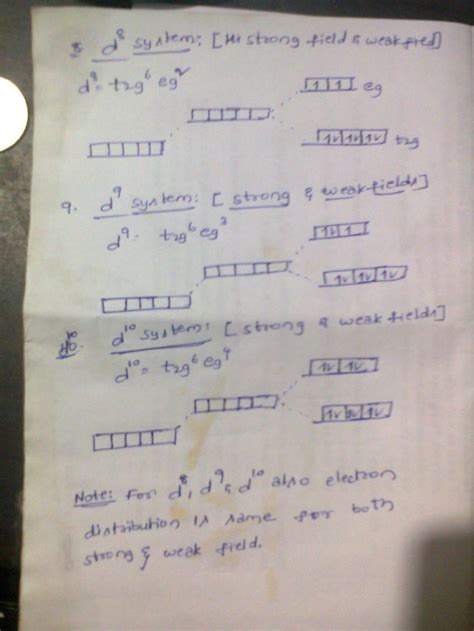 8. d⁸ system: [Hi strong field & weak fied]
d⁸= t2g⁶ eg²
1 1 eg
1v 1v 1v t2g
9. d⁹ system: [strong & weak fields]
d⁹- t2g⁶ eg³
1v 1
1v 1v 1v
10. d¹⁰ system: [strong & weak fields]
d¹⁰= t2g⁶ eg⁴
1v 1v
1v 1v 1v
Note: For d⁸, d⁹ & d¹⁰ also electron
distribution is same for both
strong & weak field.